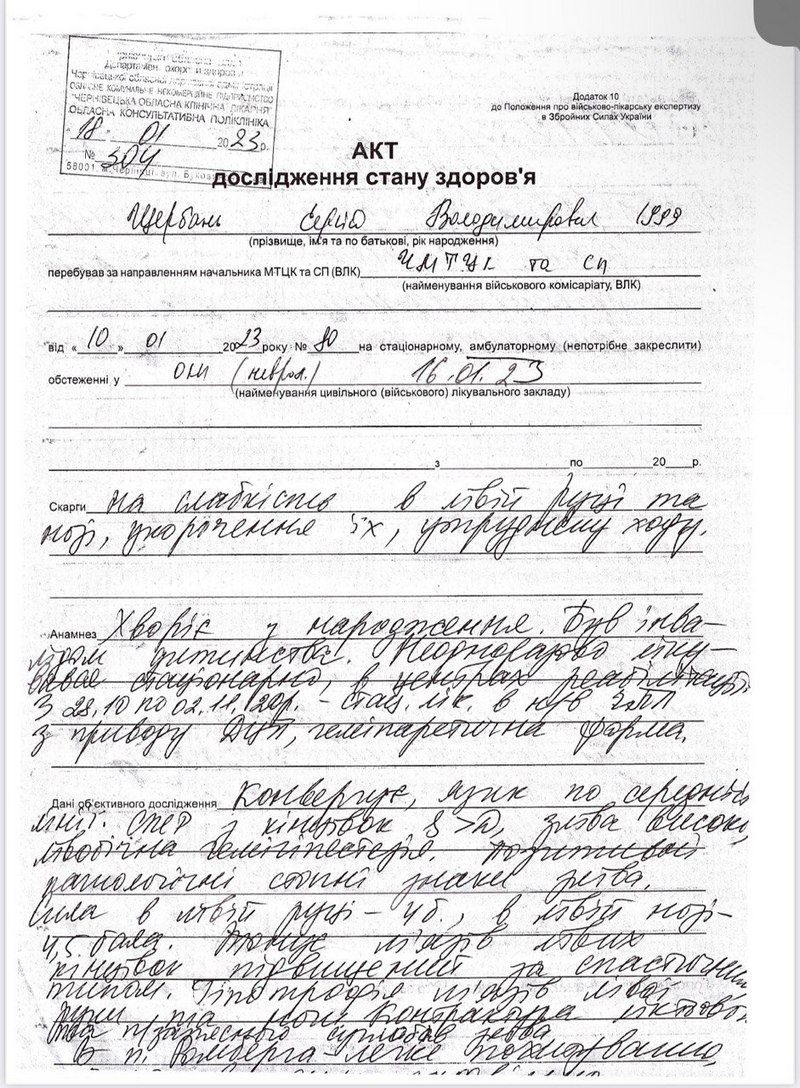 Департамент охорони здоров'я
ОБЛАСНЕ КОМУНАЛЬНЕ НЕКОМЕРЦІЙНЕ ПІДПРИЄМСТВО
"ЧЕРНІВЕЦЬКА ОБЛАСНА КЛІНІЧНА ЛІКАРНЯ"
ОБЛАСНА КОНСУЛЬТАТИВНА ПОЛІКЛІНІКА
"18" 01 2023р.
№ 304
58001, м.Чернівці, вул.
Додаток 10
до Положення про військово-лікарську експертизу
в Збройних Силах України
АКТ
дослідження стану здоров'я
Щербань Сергій Володимирович 1999
(прізвище, ім'я та по батькові, рік народження)
перебував за направленням начальника МТЦК та СП (ВЛК) ЧМТЦК та СП
(найменування військового комісаріату, ВЛК)
від «10» 01 2023 року № 80 на стаціонарному, амбулаторному (непотрібне закреслити)
обстеженні у (неврол.) 16.01.23
(найменування цивільного (військового) лікувального закладу)
з по 20 р.
Скарги на слабкість в лівій руці та
нозі, укорочення їх, утруднену ходу.
Анамнез Хворіє з народження. Був інва-
лідом дитинства. Неодноразово ліку-
вався стаціонарно, в центрах реабілітації.
З 28.10 по 02.11.20р. - стац. лік. в
з приводу ДЦП, геміпаретична форма.
Дані об'єктивного дослідження Конвергує, язик по середній
лінії. з кінцівок S>D, зліва високі,
лівобічна гемігіпестезія. Позитивні
патологічні стопні знаки зліва.
Сила в лівій руці - 4б., в лівій нозі-
4,5 бала. Тонус м'язів лівих
кінцівок підвищений за спастичним
типом. Гіпотрофія м'язів лівої
руки та ноги. Контрактура ліктьового
та п/зап'ясного суглобів зліва
В п. Ромберга легке похитування,